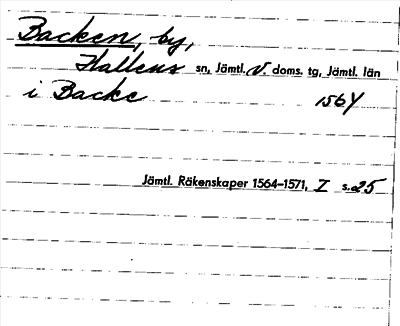 Backen, by,
Hallens sn, Jämtl. V. doms. tg, Jämtl. län
i Backe 1564
Jämtl. Räkenskaper 1564–1571, I s. 25